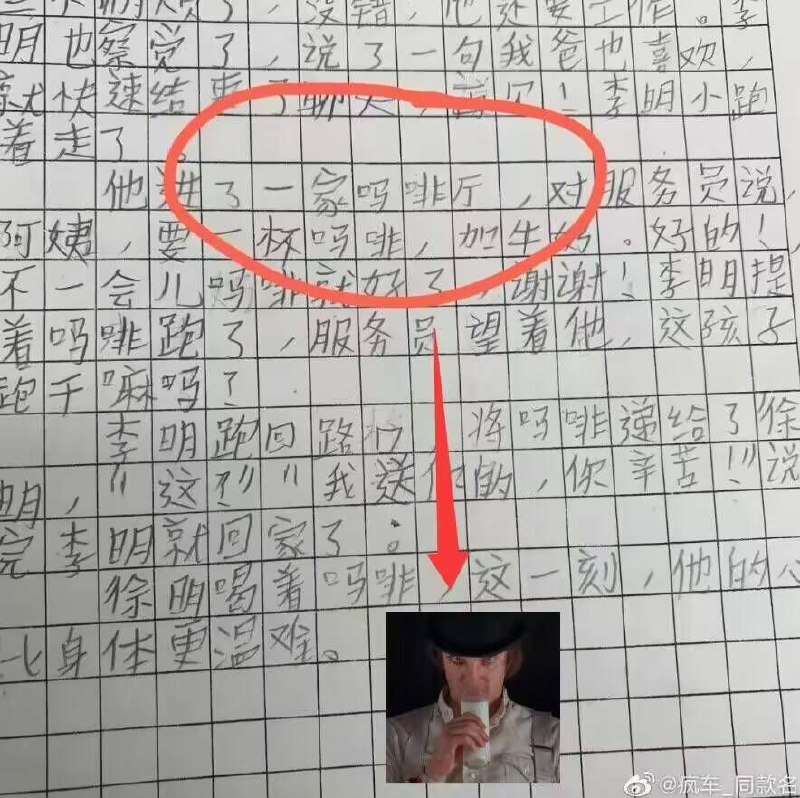 了，没错，他还要工作。李
明也察觉了，说了一句我爸也喜欢，
就快速结束了聊天，富贝！李明小跑
着走了。
他进了一家吗啡厅，对服务员说，
阿姨，要一杯吗啡，加牛奶。好的！
不一会儿吗啡就好了，谢谢！李明提
着吗啡跑了，服务员望着他，这孩子
跑干嘛吗？
李明跑回路口，将吗啡递给了徐
明，"这！""我送你的，你辛苦！"说
完李明就回家了。
徐明喝着吗啡，这一刻，他的心
比身体更温难。
@疯车_同款名